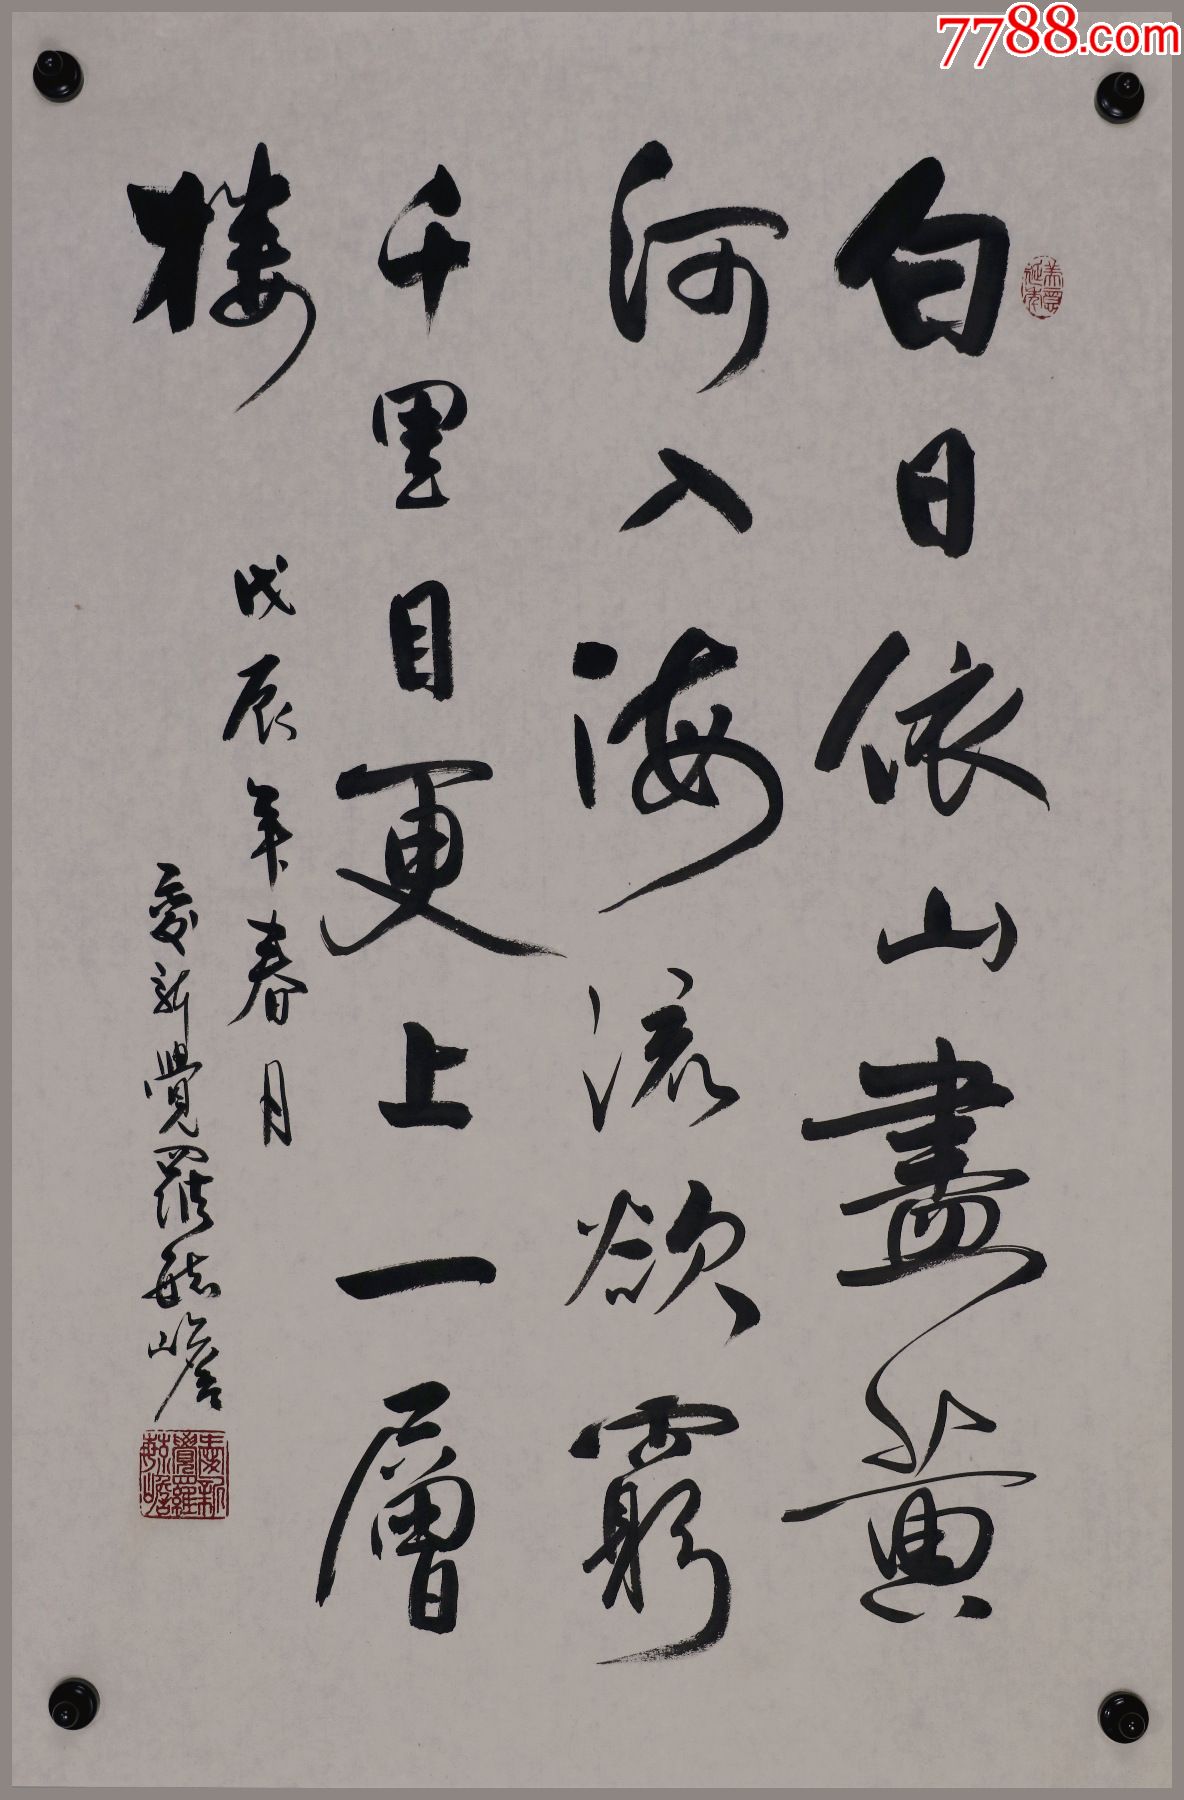 7788.com
白日依山盡黃
河入海流欲窮
千里目更上一層
楼
戊辰年春月
愛新覺羅毓嶦
愛新覺羅毓嶦